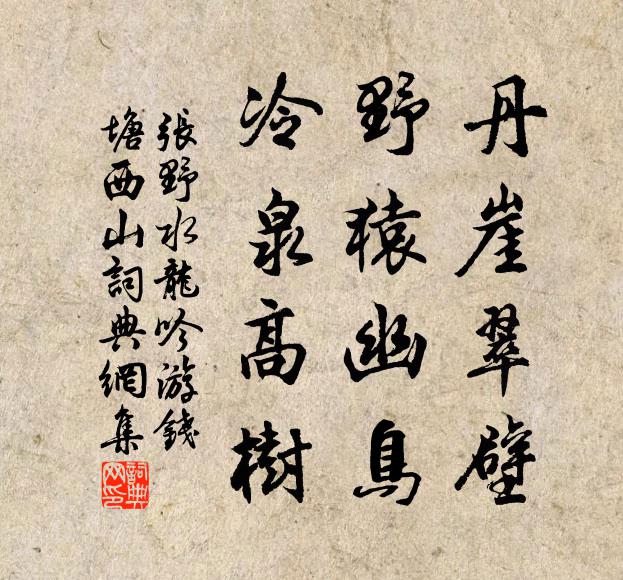 丹崖翠壁
野猿幽鳥
冷泉高樹
張野水龍吟游錢
塘西山詞典網集
詞典网印